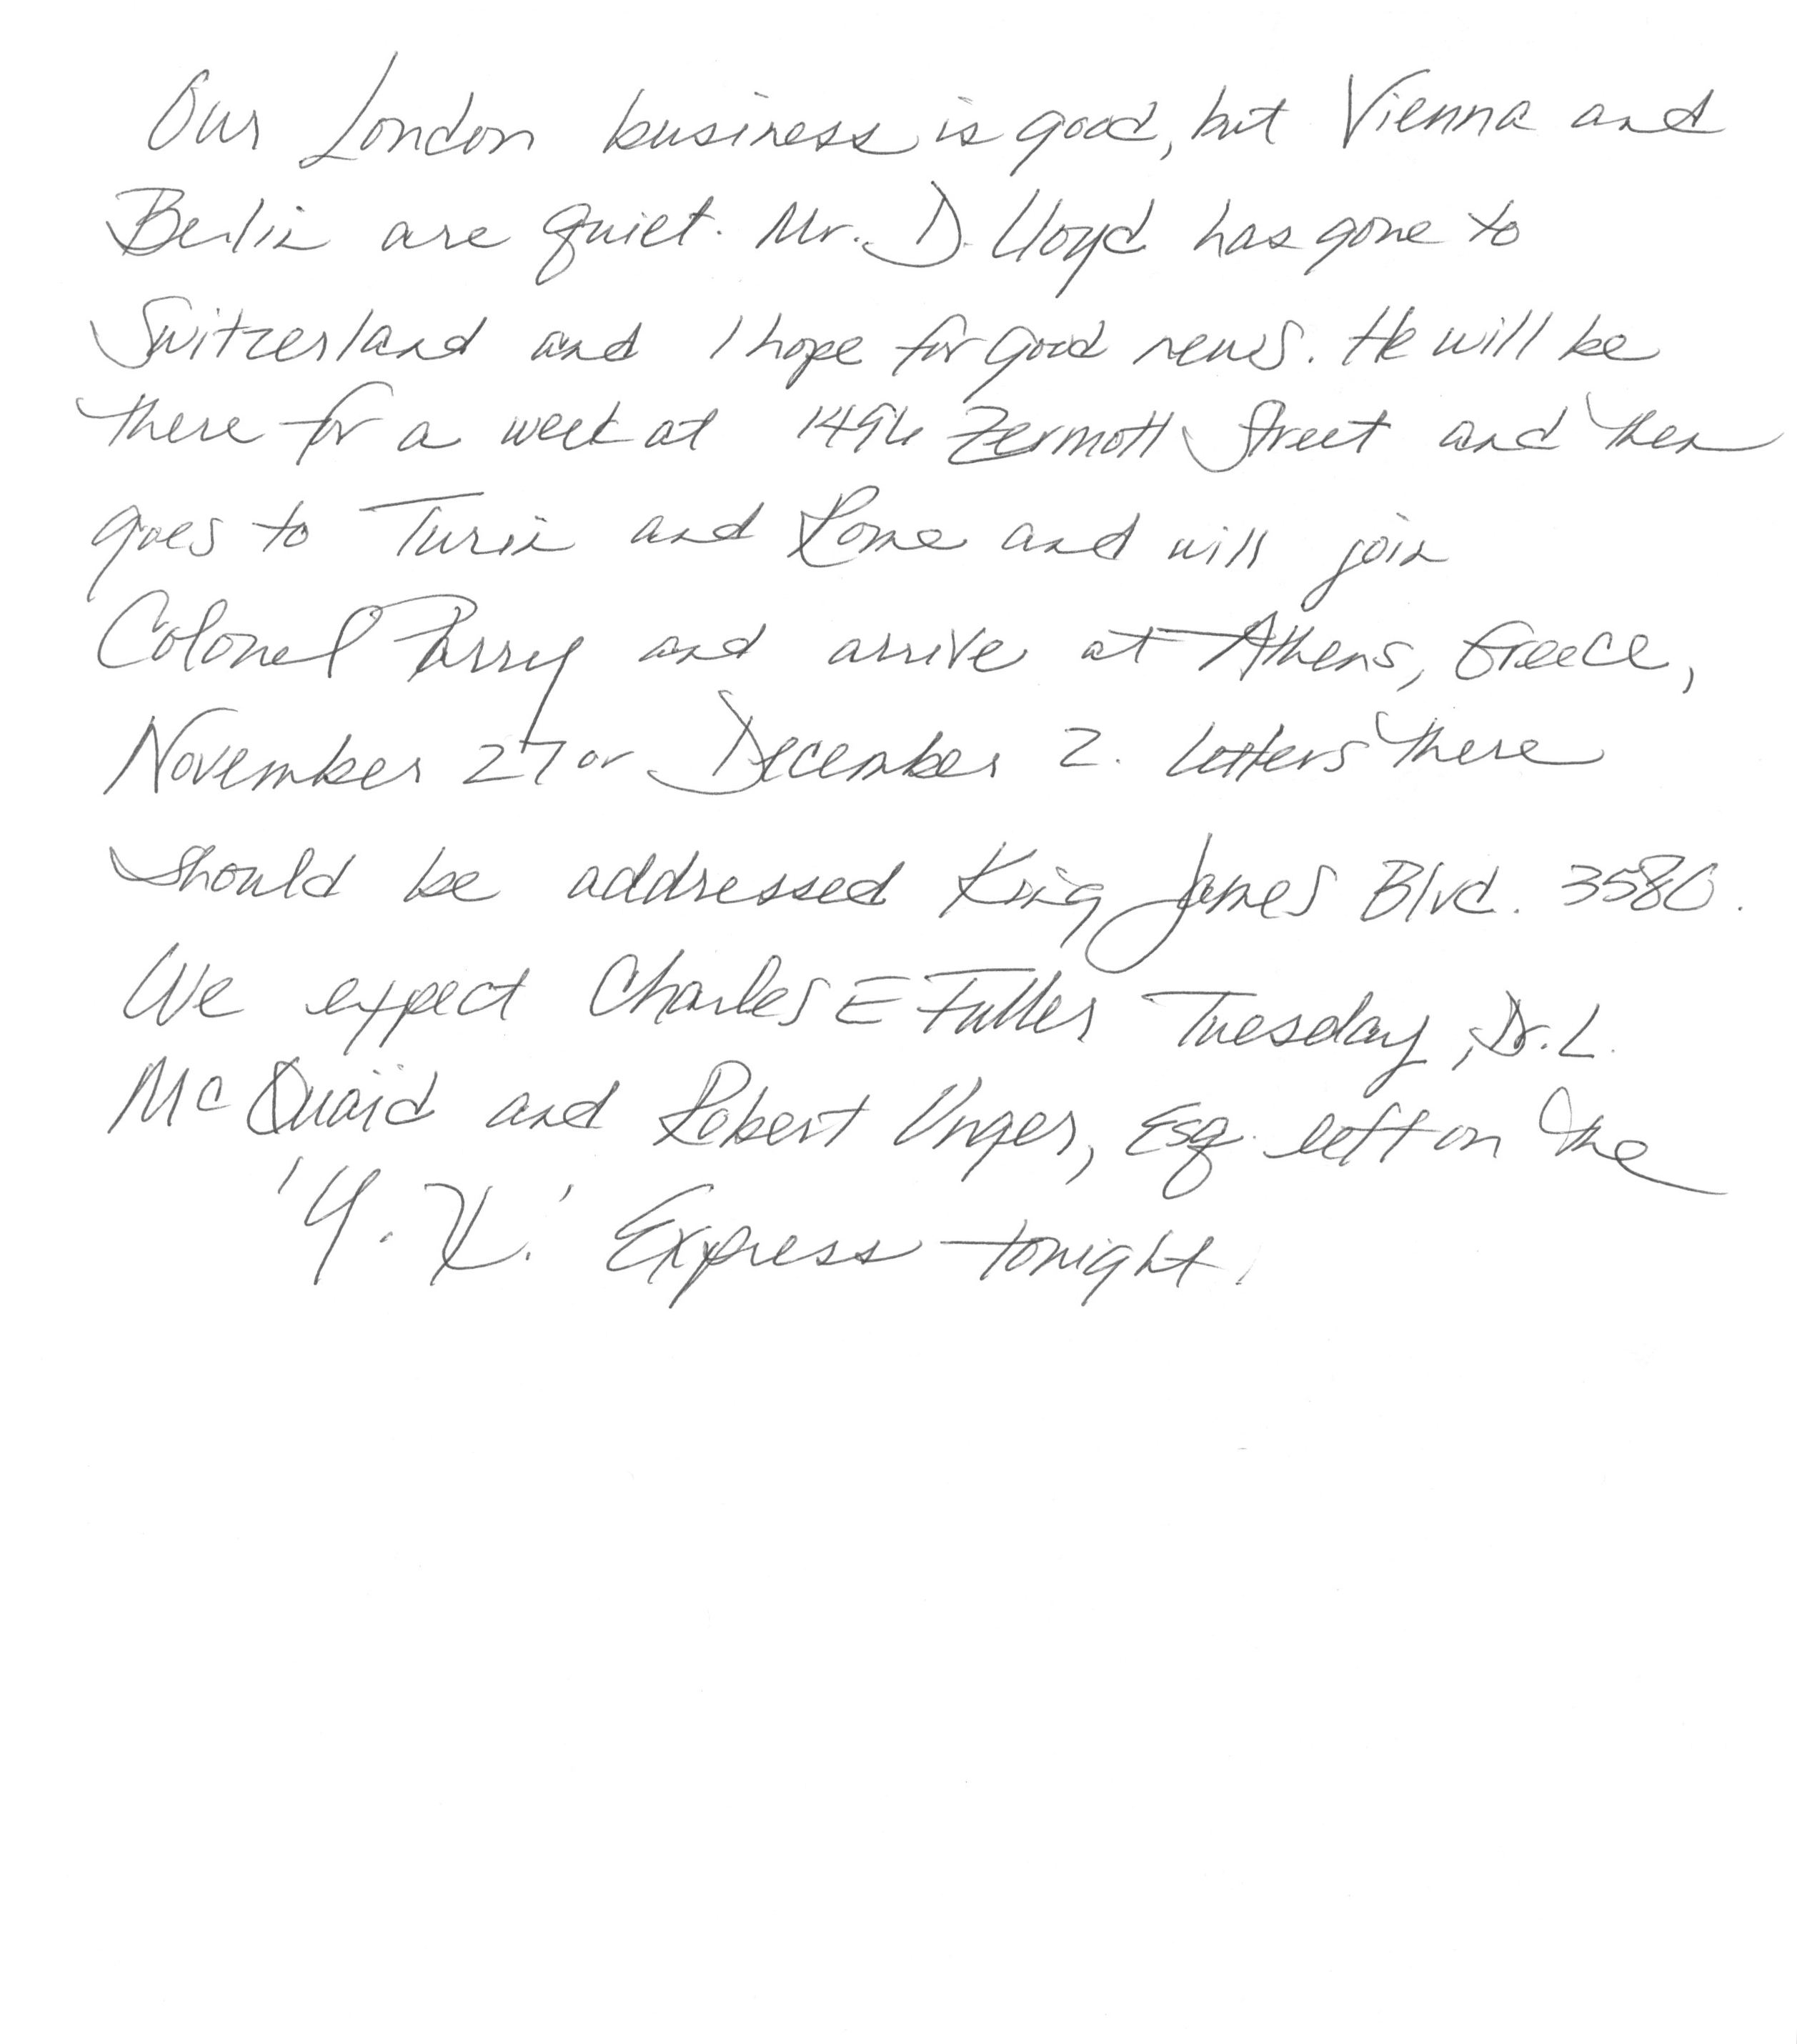 Our London business is good, but Vienna and
Berlin are quiet. Mr. D. Lloyd has gone to
Switzerland and I hope for good news. He will be
there for a week at 1496 Zermott Street and then
goes to Turin and Rome and will join
Colonel Parry and arrive at Athens, Greece,
November 27 or December 2. Letters there
should be addressed King James Blvd. 3580.
We expect Charles E Fuller Tuesday, Dr. L.
McQuaid and Robert Unger, Esq. left on the
'Y. X.' Express tonight.